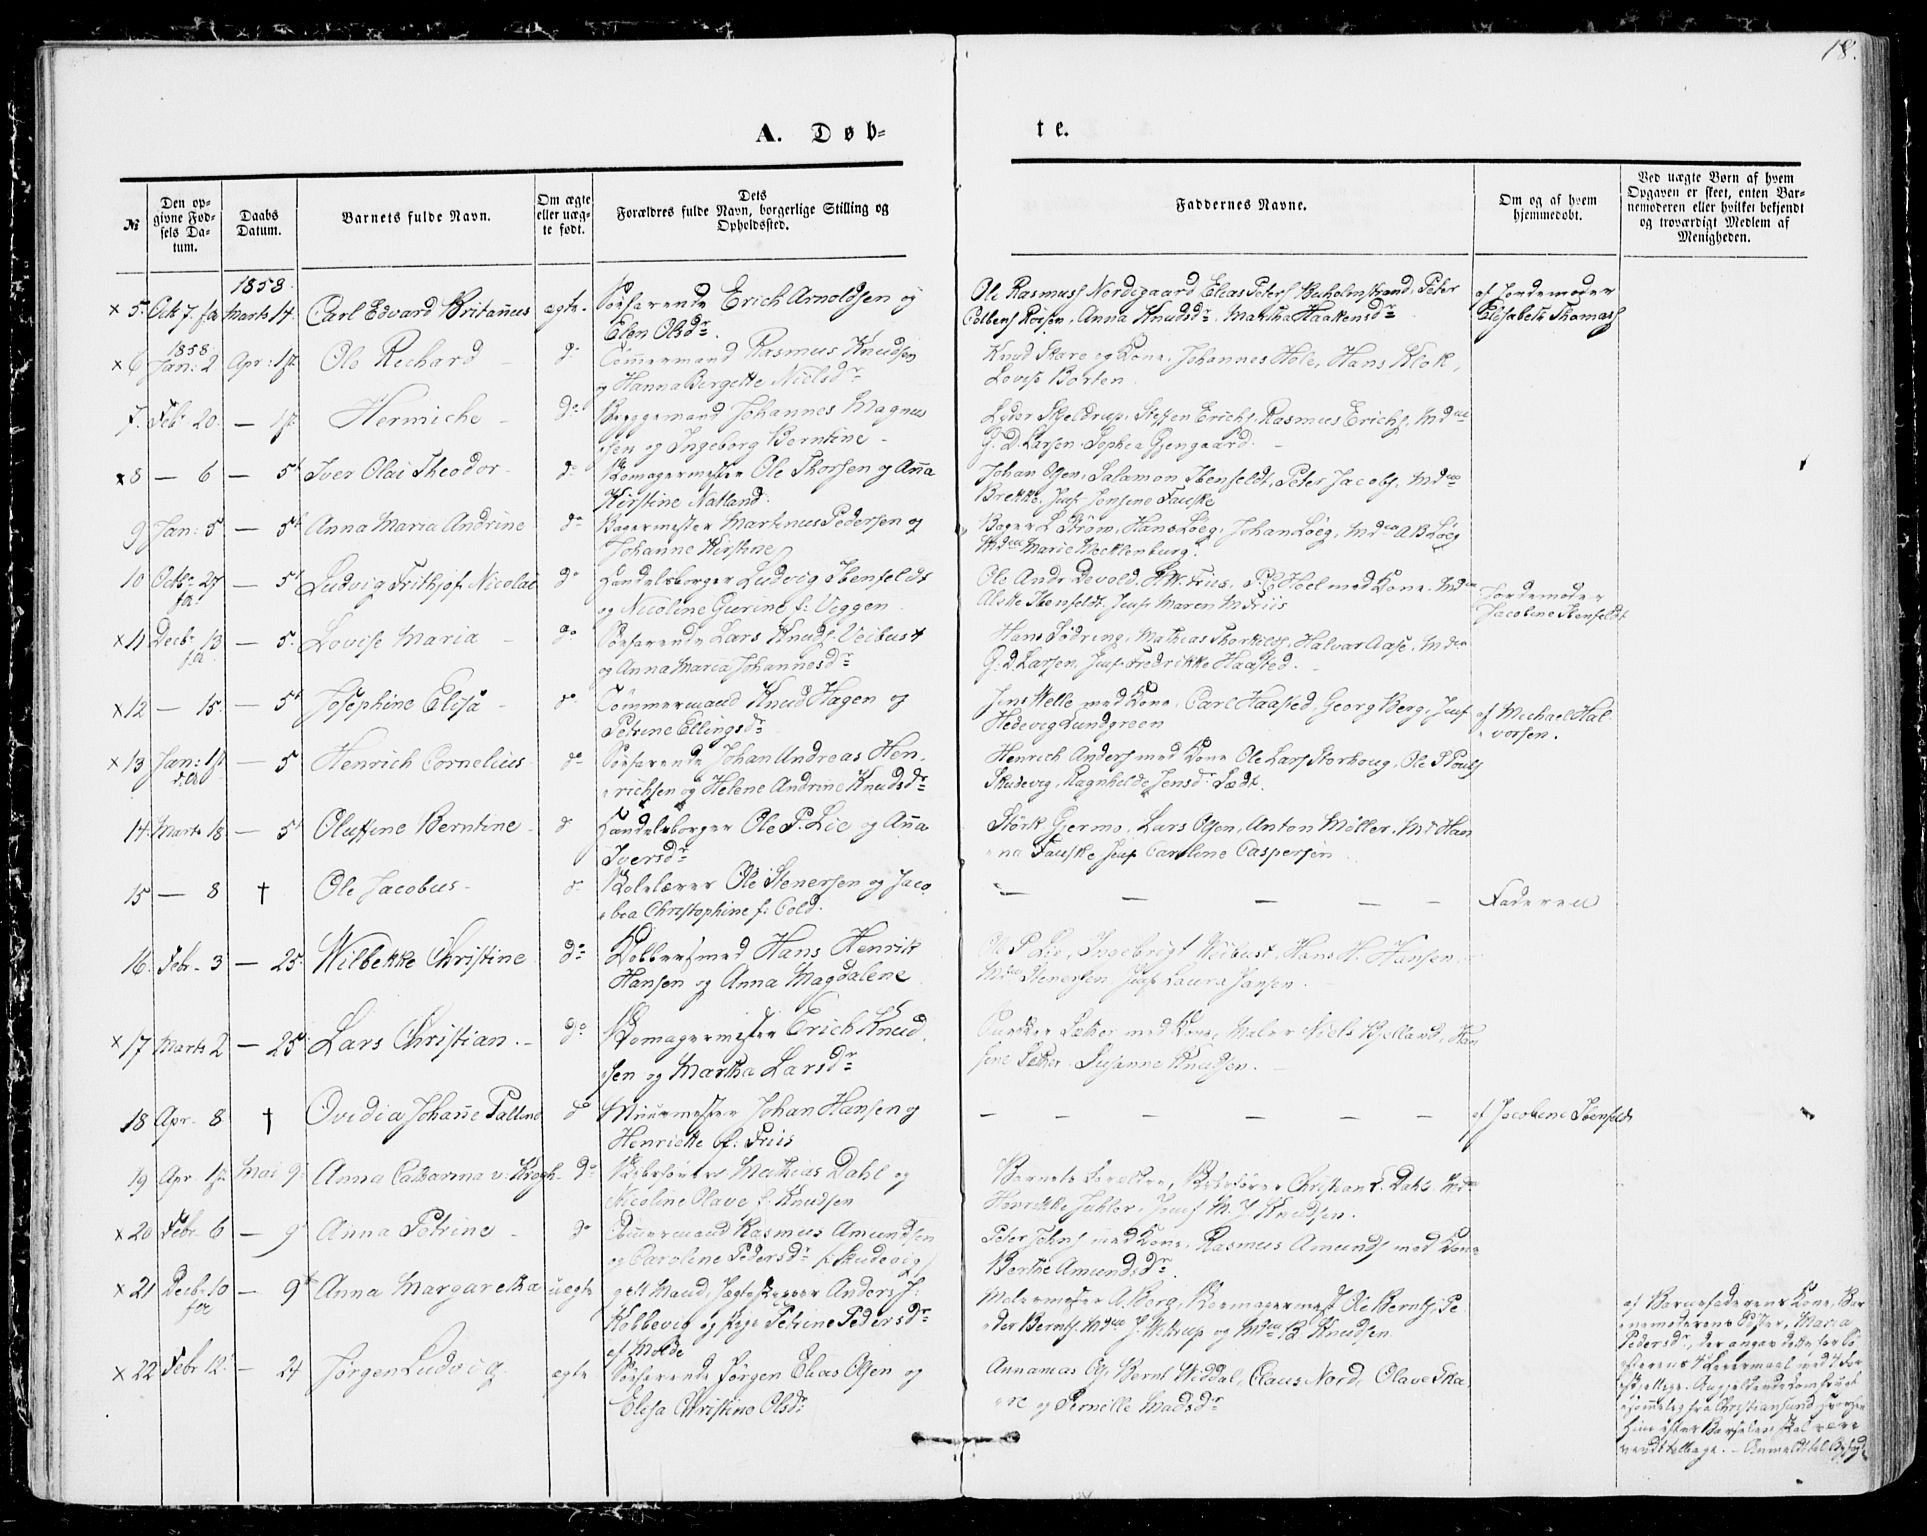 18.
A. Døb-
te.
№
Den op-
givne Fød-
sels Da-
tum.
Daabs
Datum.
Barnets fulde Navn.
Om ægte
eller uæg-
te født.
Dets
Forældres fulde Navn, borgerlige Stilling og
Opholdssted.
Faddernes Navne.
Om og af hvem
hjemmedøbt.
Ved uægte Born af hvem
Opgaven er skeet, enten Bar-
nemoderen eller hvilket bekjendt
og troværdigt Medlem af
Menigheden.
1858.
× 5. Oct 7. fa Marts 14 Carl Edvard Britanus ægte. Søefarende Erich Arnoldsen og
Elen Olsdr.
Ole Rasmuss Nordsgaard Elias Peters Buholmstrand, Peter
Colbens Røisen, Anna Knudsdr. Martha Haakensdr
af Jordemoder
Elisabeth Thomass
1858.
× 6 Jan: 2 Apr: 1st Ole Rechard - do Tømmermand Rasmus Knudsen
og Hanna Bergette Nielsdr
Knud Skare og Kone, Johannes Hole, Hans Klok,
Lovise Borten
7. Feb. 20. — 1st Hermiche - Do Byggemand Johannes Magnus
sen og Ingeborg Berntine -
Lyder Skeldrup, Steffen Erichs, Rasmus Erichs, Mdme
G. D. Larsen, Sophea Gjengaard. -
× 8 — 6 — 5t Iver Olai Theodor - do Skomagermester Ole Thorsen og Aña
Kirstine Natland.
Johan Olsen, Salamon Ibenfeldt, Peter Jacobs, Mdme
Brekke, Jmf Jensine Fauske
9 Jan: 5 — 5t Anna Maria Andrine do Bagermester Martinus Pedersen og
Johanne Kirstine
Bager L Strøm, Hans Løeg, Johan Løeg, Mdme A B Løeg
Mdme Marie Mecklenburg.
10 Octb. 27 fa. — 5t Ludvig Frithjof Nicolai do Handelsborger Ludvig Ibenfeldt
og Nicoline Gurine f: Veggen
Ole Andr Devold. H. W. Friis, P. C Hoel med Kone, Mdme
Ibenfeldt. Jmf Maren M Friis
Jordemoder
Jacobine Ibenfeldt
× 11 Decb. 13 fa. — 5. Lovise Maria - do Søefarende Lars Knuds Veibust
og Anna Maria Johannesdr
Hans Sødring, Mathias Thorkilds, Halvar Aase, Mdme
G. D. Larsen, Jmf Fredrikke Haasted. -
× 12 — 15. — 5t Josephine Elisa - do Tømmermand Knud Hagen og
Petrine Ellingsdr
Jens Welle med Kone, Carl Haasted, Georg Berg, Jmf
Hedevig Lundgreen
af Michael Hal
vorsen.
× 13 Jan: 1st — 5 Henrich Cornelius do Søefarende Johan Andreas Hen-
richsen og Helene Andrine Knudsdr
Henrich Anders med Kone Ole Lars Storhoug, Ole
Skudevig, Ragnhilde Jensdr
14. Marts 18 — 5t Oluffine Berntine - do Handelsborger Ole P. Lie og Aña
Iversdr
Størk Gjermo, Lars Olsen, Anton Møller, Md Han
na Fauske Jmf Caroline Caspersen
15 — 8 † Ole Jacobus - do Skolelærer Ole Stenersen og Jaco
bea Christophine f: Cold.
— — — — — —
Faderen
16. Febr. 3 — 25. Wilbekke Christine do Kobbersmed Hans Henrik
Hansen og Anna Magdalene
Ole P. Lie, Ingebrigt Weibust, Hans H. Hansen,
Mdme Stenersen Jmf Laura Jansen. -
× 17 Marts 2 — 25. Lars Christian. - do Skomagermester Erich Knud
sen og Martha Larsdr
Sæther med Kone, Maler Niels Kjelland, Han
sine Sæther. Susanne Knudsen. -
18 Apr. 8 † Ovidia Johañe do Muurmester Johan Hansen og
Henriette f: Friis
— — — — — —
af Jacobine Ibenfeldt
19 Apr 1st Mai 9. Anna Catharina v. Krogh - do Skibsfører Mathias Dahl og
Nicoline Olave f: Knudsen
Barnets Foreldre, Skibsfører Christian F. Dahl, Mdme
Henrikke Juhler, Jomf M. J. Knudsen.
× 20 Febr. 6 — 9 Anna Petrine - do Tømmermand Rasmus Amundsen
og Caroline Pedersdr f. Skudevig
Peter Johns med Kone, Rasmus Amunds med Kone
Berthe Amundsdr.
× 21 Decbr. 10 fa — 9t Anna Margaretha uegte gift Mand, Jægteskipper Anders J.
Kolbevig og Pige Petrine Pedersdr
af Molde
Malermester A. Berg, Skomagermest Ole Bernts, Pe
der Bernts Mdme J. Wittrup og Mdme B. Knudsen
af Barnefaderens Kone, Bar
nemoderens Søster, Maria
Pedersdr, der angav dette for
Faderens 4 Leiermaal med 4 for
skjellige.
fra Christiansund
skal være
vendt tilbage. -
× 22 Febr. 12. — 24 Jørgen Ludvig ægte Søefarende Jørgen Elias Olsen og
Elisa Christine Olsdr
Annanias Ols, Bernt Widdal, Claus Nord, Olave Ska
re og Pernille Madsdr